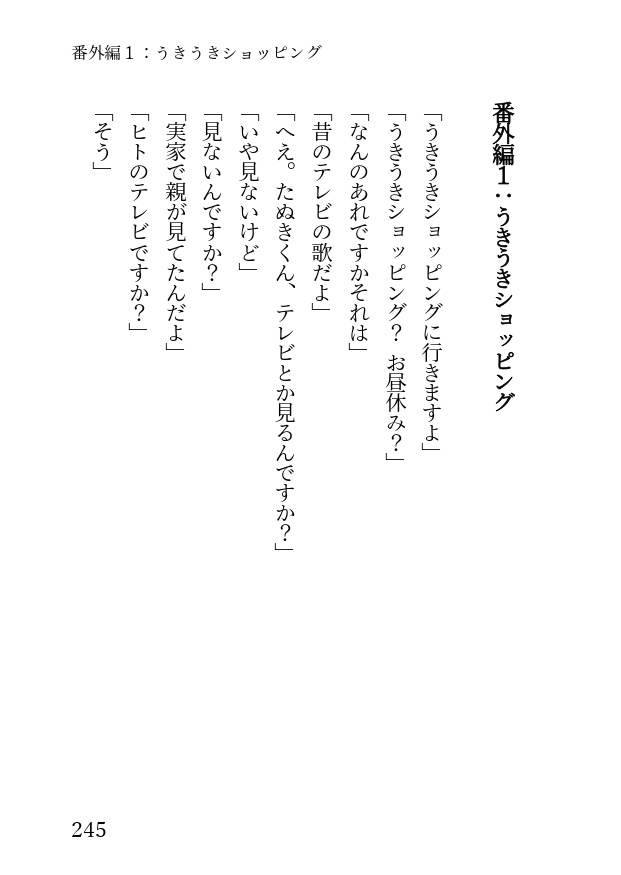 番外編１：うきうきショッピング
番外編１：うきうきショッピング
「うきうきショッピングに行きますよ」
「うきうきショッピング？　お昼休み？」
「なんのあれですかそれは」
「昔のテレビの歌だよ」
「へえ。たぬきくん、テレビとか見るんですか？」
「いや見ないけど」
「見ないんですか？」
「実家で親が見てたんだよ」
「ヒトのテレビですか？」
「そう」
245